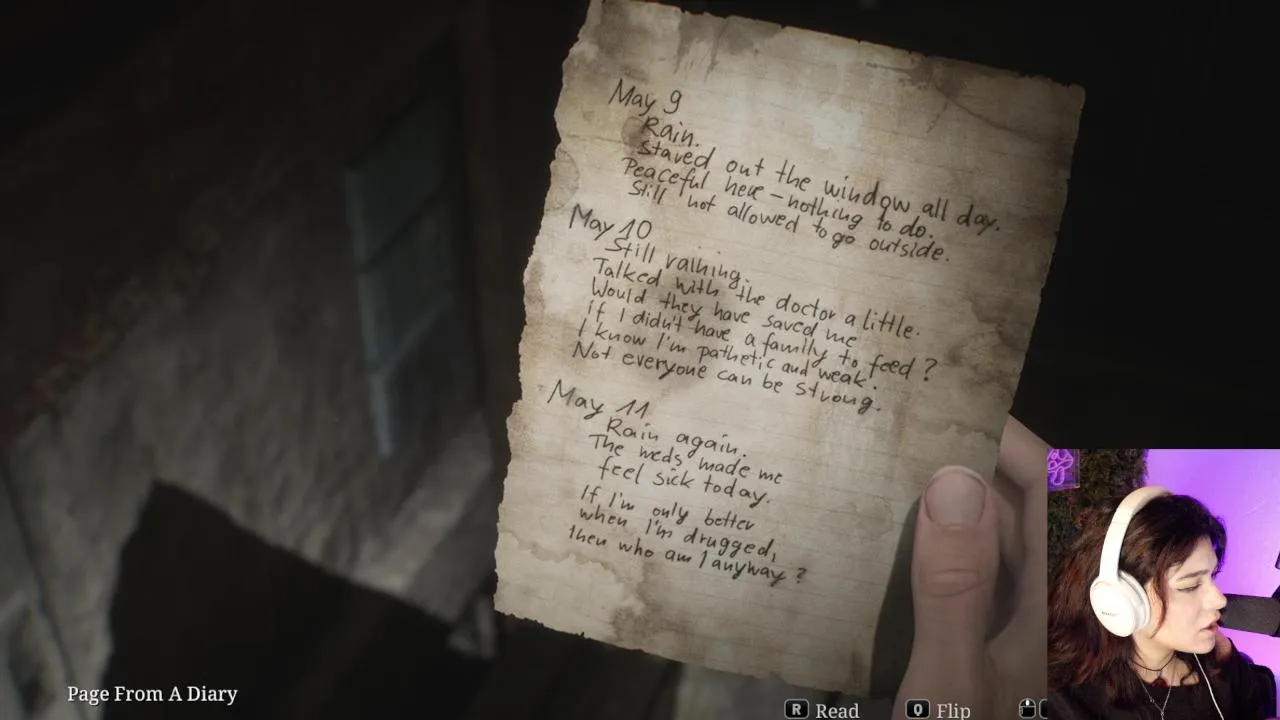 May 9
Rain.
Stared out the window all day.
Peaceful here – nothing to do.
Still not allowed to go outside.
May 10
Still raining.
Talked with the doctor a little.
Would they have saved me
if I didn't have a family to feed?
I know I'm pathetic and weak.
Not everyone can be strong.
May 11
Rain again.
The meds made me
feel sick today.
If I'm only better
when I'm drugged,
then who am I anyway?
Page From A Diary
R Read
Q Flip